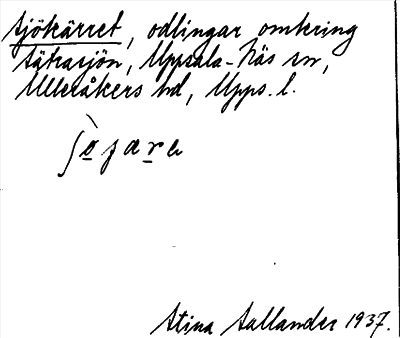 Sjökärret, odlingar omkring
Säbasjön, Uppsala-Näs sn,
Ulleråkers hd, Upps. l.
Stina Sallander 1937.